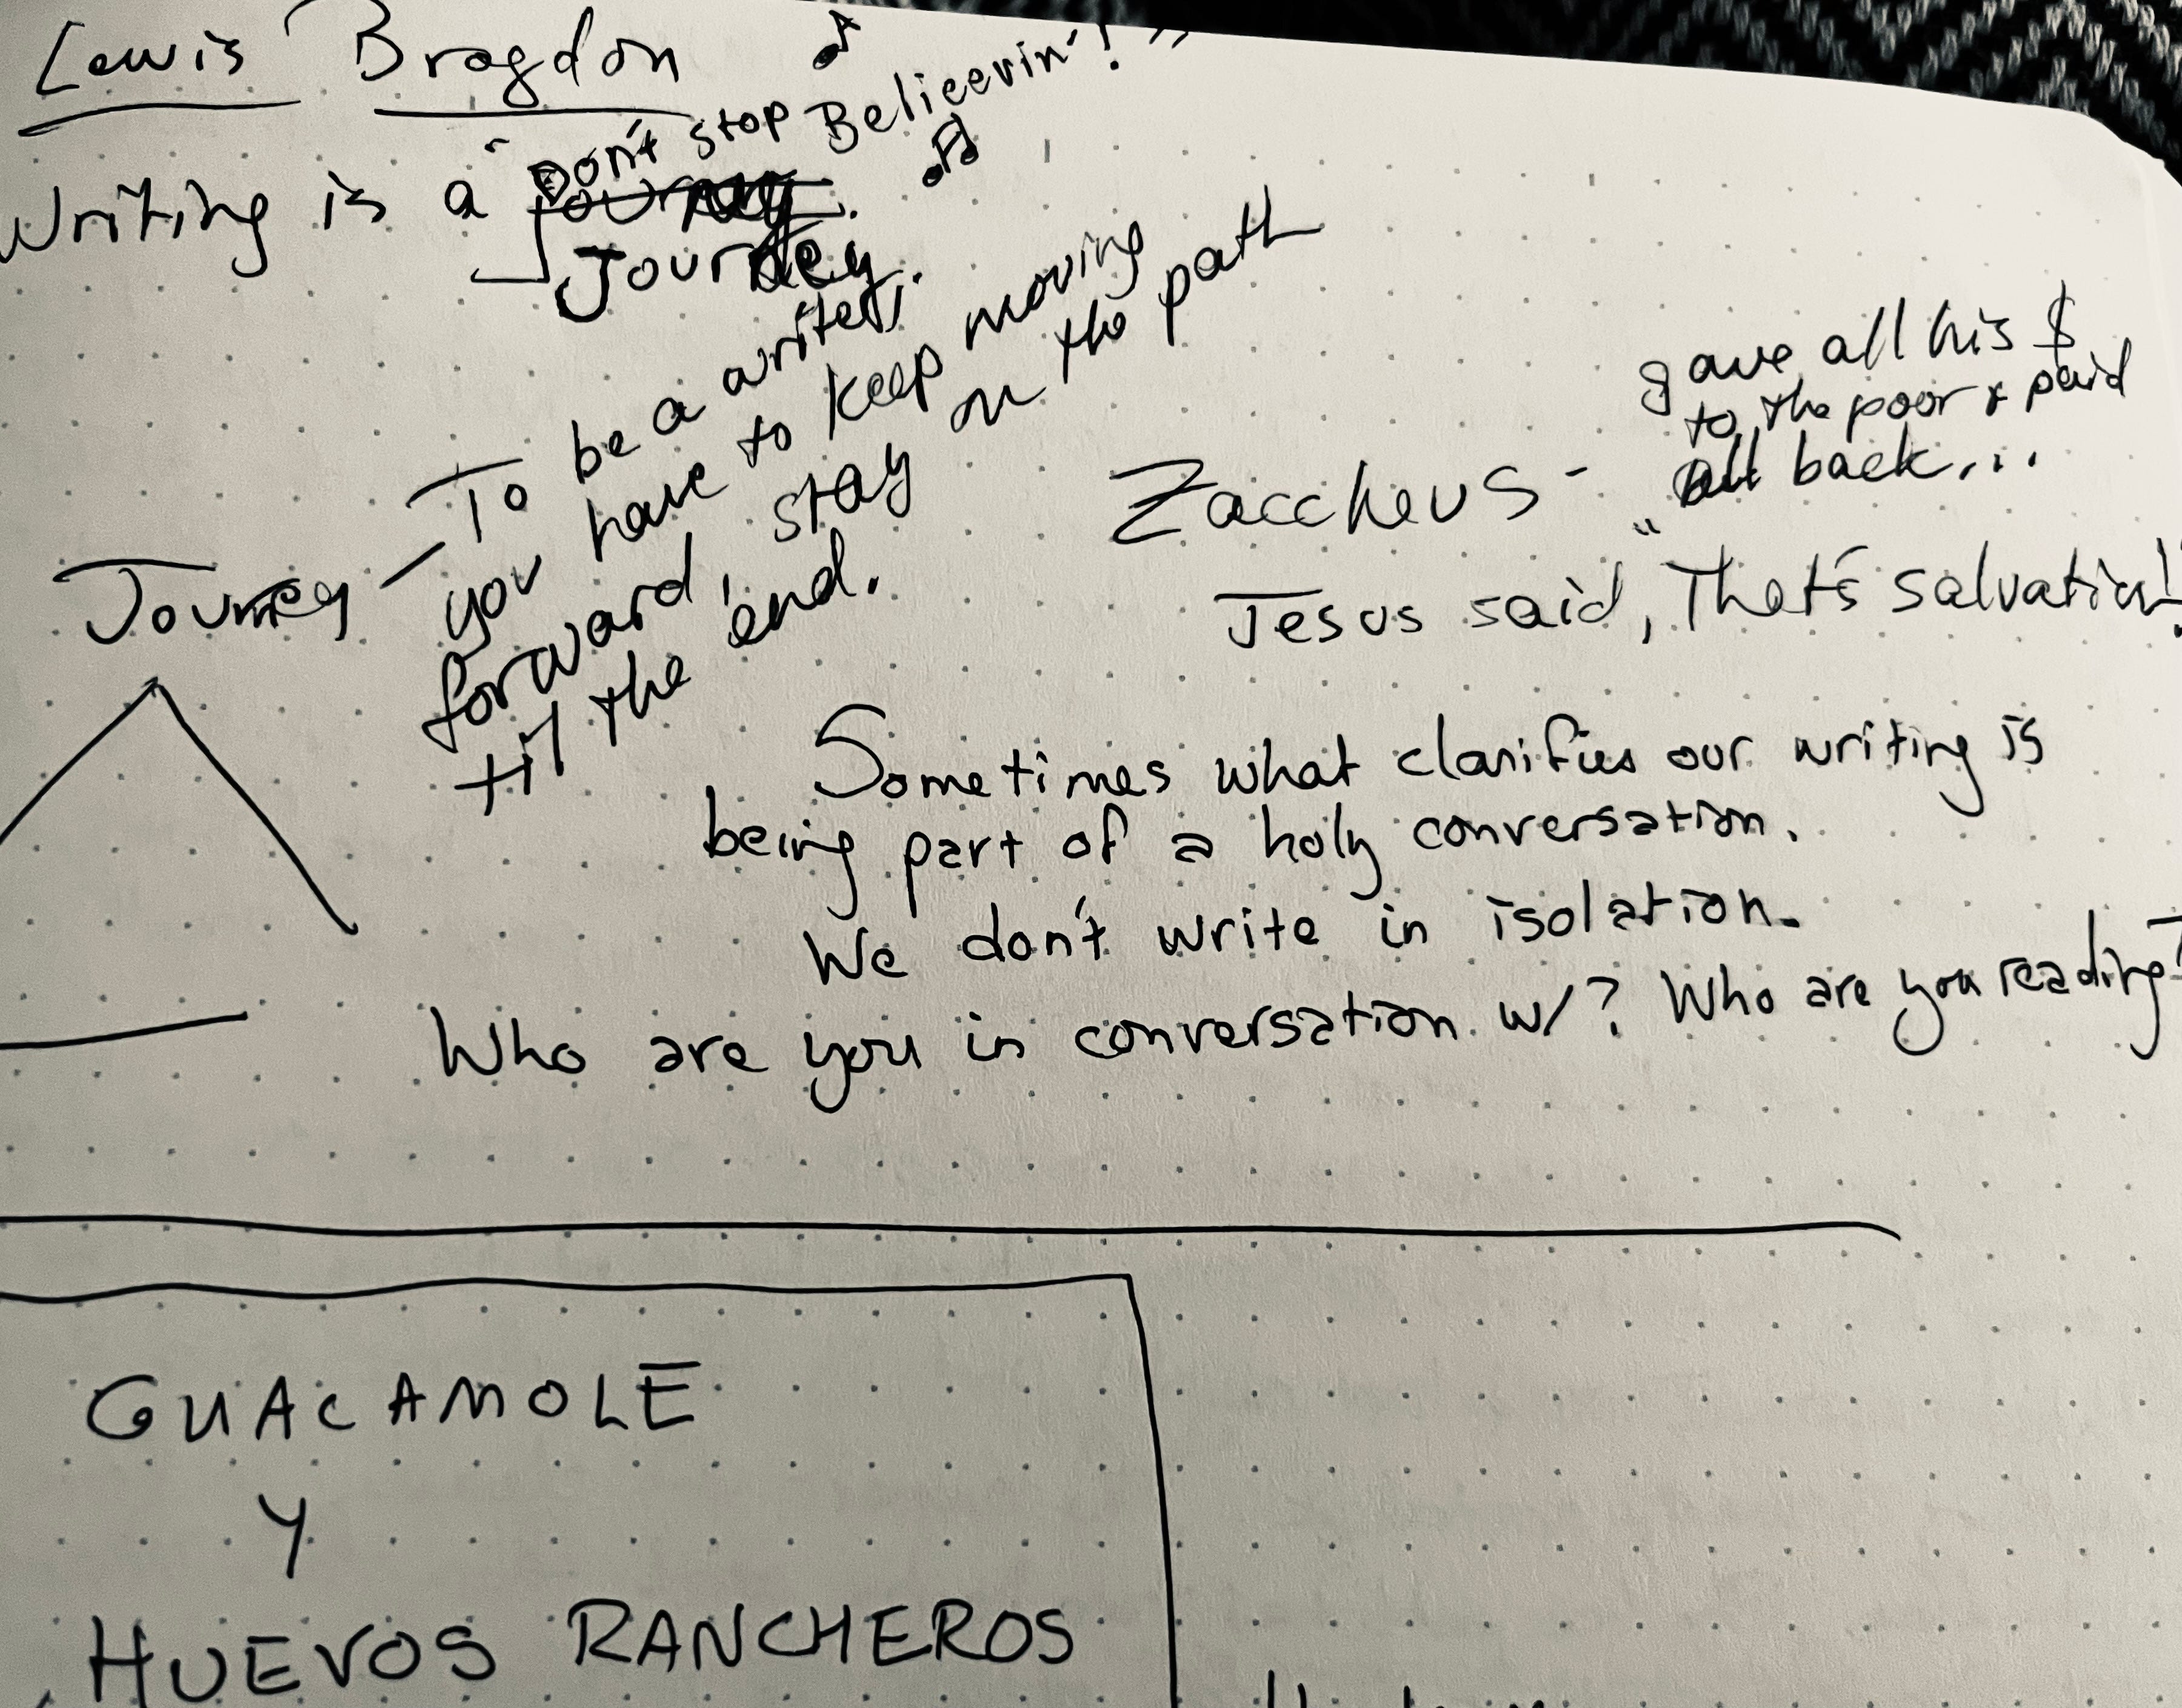 Lewis Brogdon
"Don't stop Belieevin'!"
Writing is a journey.
Journey.
Journey - To be a writer,
you have to keep moving
forward, stay on the path
til the end.
gave all his $
to the poor & paid
Zaccheus - all back...
Jesus said, "That's salvation!
Sometimes what clarifies our writing is
being part of a holy conversation.
We don't write in isolation.
Who are you in conversation w/? Who are you reading?
GUACAMOLE
Y
HUEVOS RANCHEROS